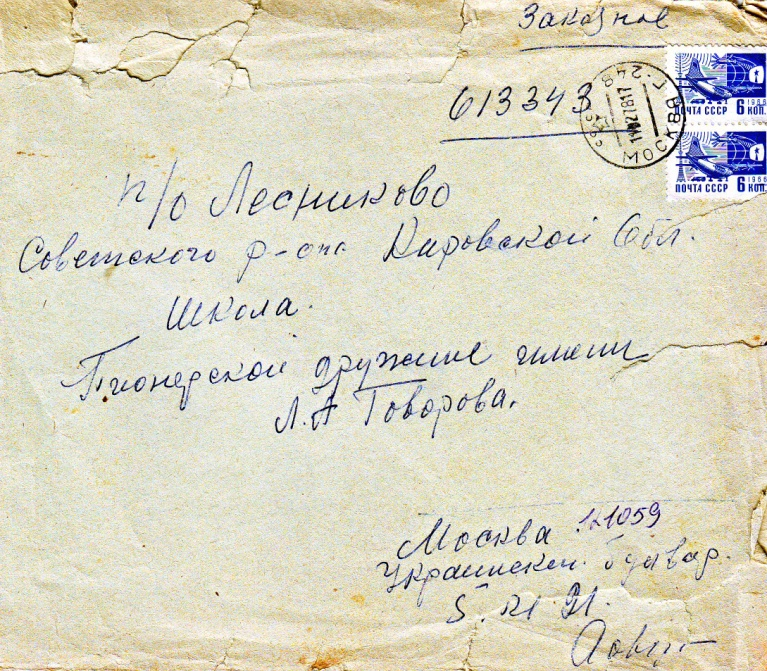 Заказное
613343
МОСКВА Г-248
СССР
ПОЧТА СССР 6 КОП.
1966
ПОЧТА СССР 6 КОП.
1966
п/о Лесниково
Советского р-она Кировской Обл.
Школа.
Пионерской дружине имени
Л.А Говорова.
Москва 121059
Украинский бульвар.
5.